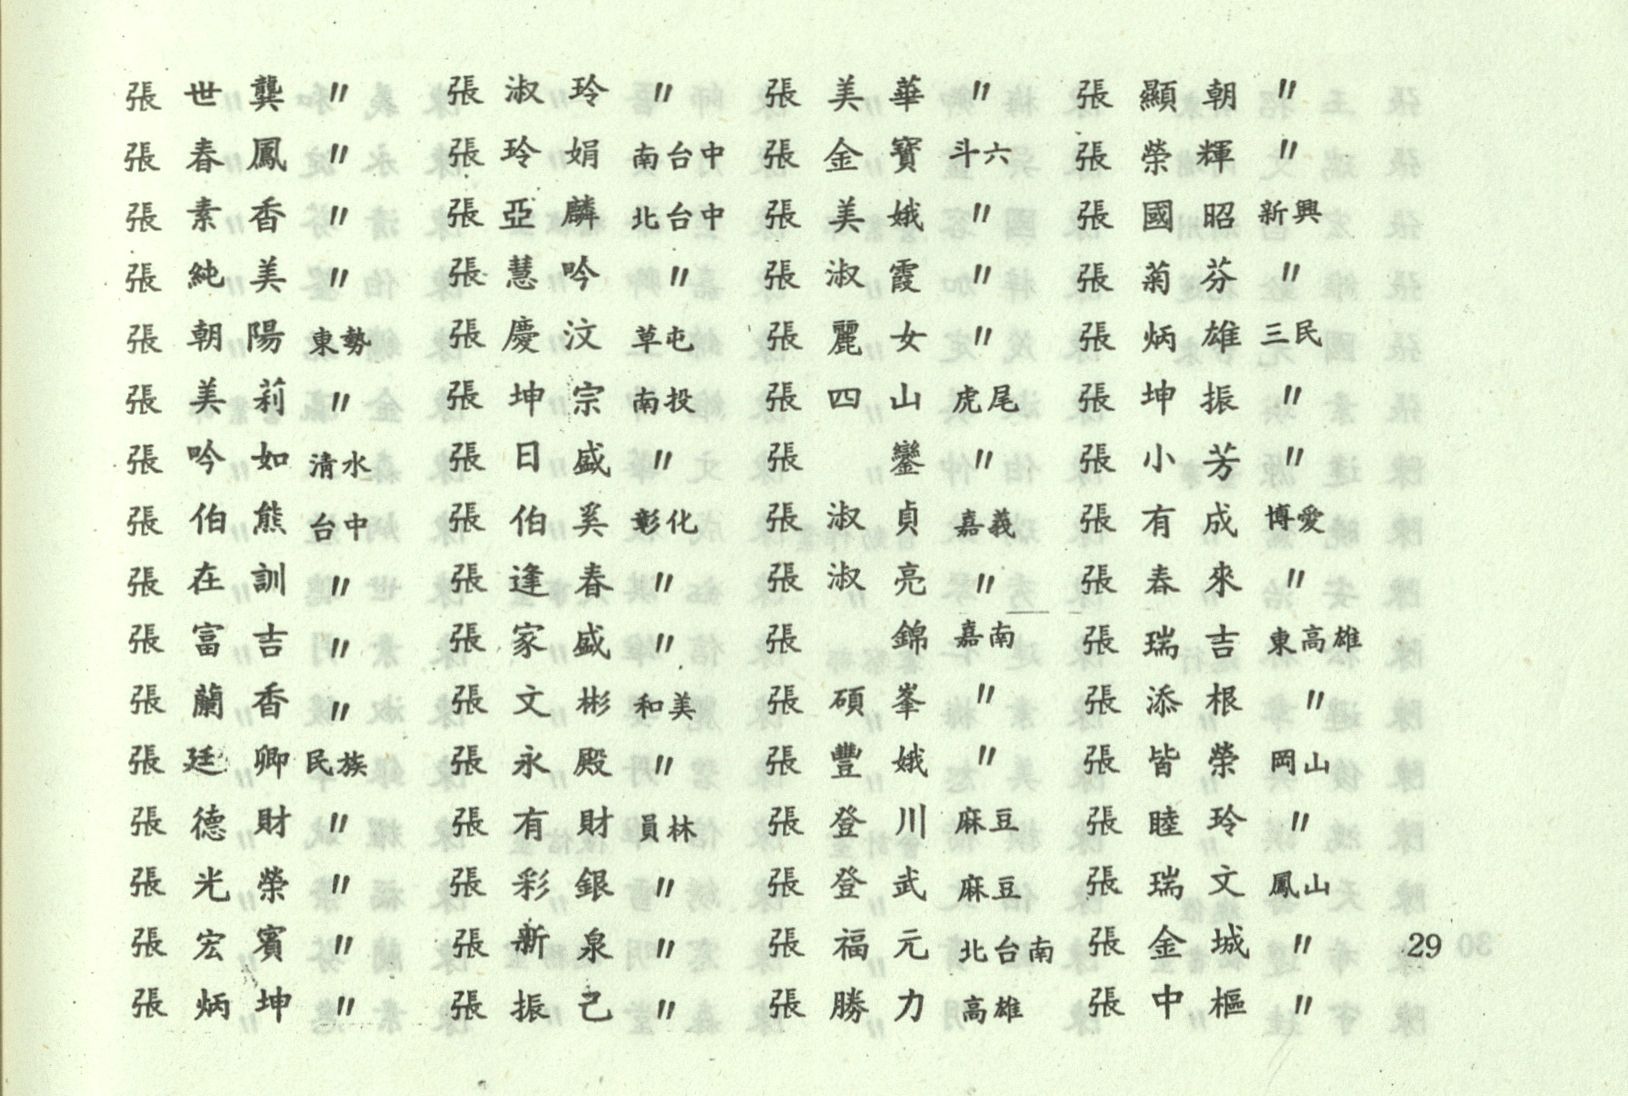 張世龔 〃
張春鳳 〃
張素香 〃
張純美 〃
張朝陽 東勢
張美莉 〃
張吟如 清水
張伯熊 台中
張在訓 〃
張富吉 〃
張蘭香 〃
張廷卿 民族
張德財 〃
張光榮 〃
張宏賓 〃
張炳坤 〃
張淑玲 〃
張玲娟 南台中
張亞麟 北台中
張慧吟 〃
張慶汶 草屯
張坤宗 南投
張日盛 〃
張伯奚 彰化
張逢春 〃
張家盛 〃
張文彬 和美
張永殿 〃
張有財 員林
張彩銀 〃
張新泉 〃
張振己 〃
張美華 〃
張金寶 斗六
張美娥 〃
張淑霞 〃
張麗女 〃
張四山 虎尾
張鑾 〃
張淑貞 嘉義
張淑亮 〃
張錦 嘉南
張碩峯 〃
張豐娥 〃
張登川 麻豆
張登武 麻豆
張福元 北台南
張勝力 高雄
張顯朝 〃
張榮輝 〃
張國昭 新興
張菊芬 〃
張炳雄 三民
張坤振 〃
張小芳 〃
張有成 博愛
張春來 〃
張瑞吉 東高雄
張添根 〃
張皆榮 岡山
張睦玲 〃
張瑞文 鳳山
張金城 〃
張中樞 〃
29